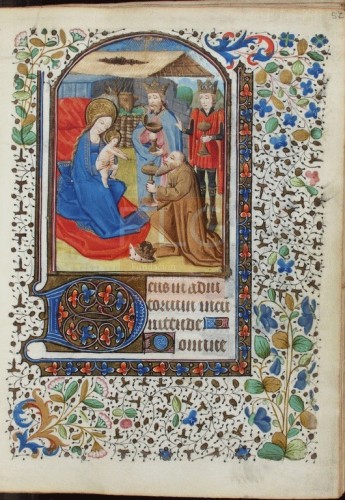 52
Deus in adiu
toriu[m] meū
intende
Domine